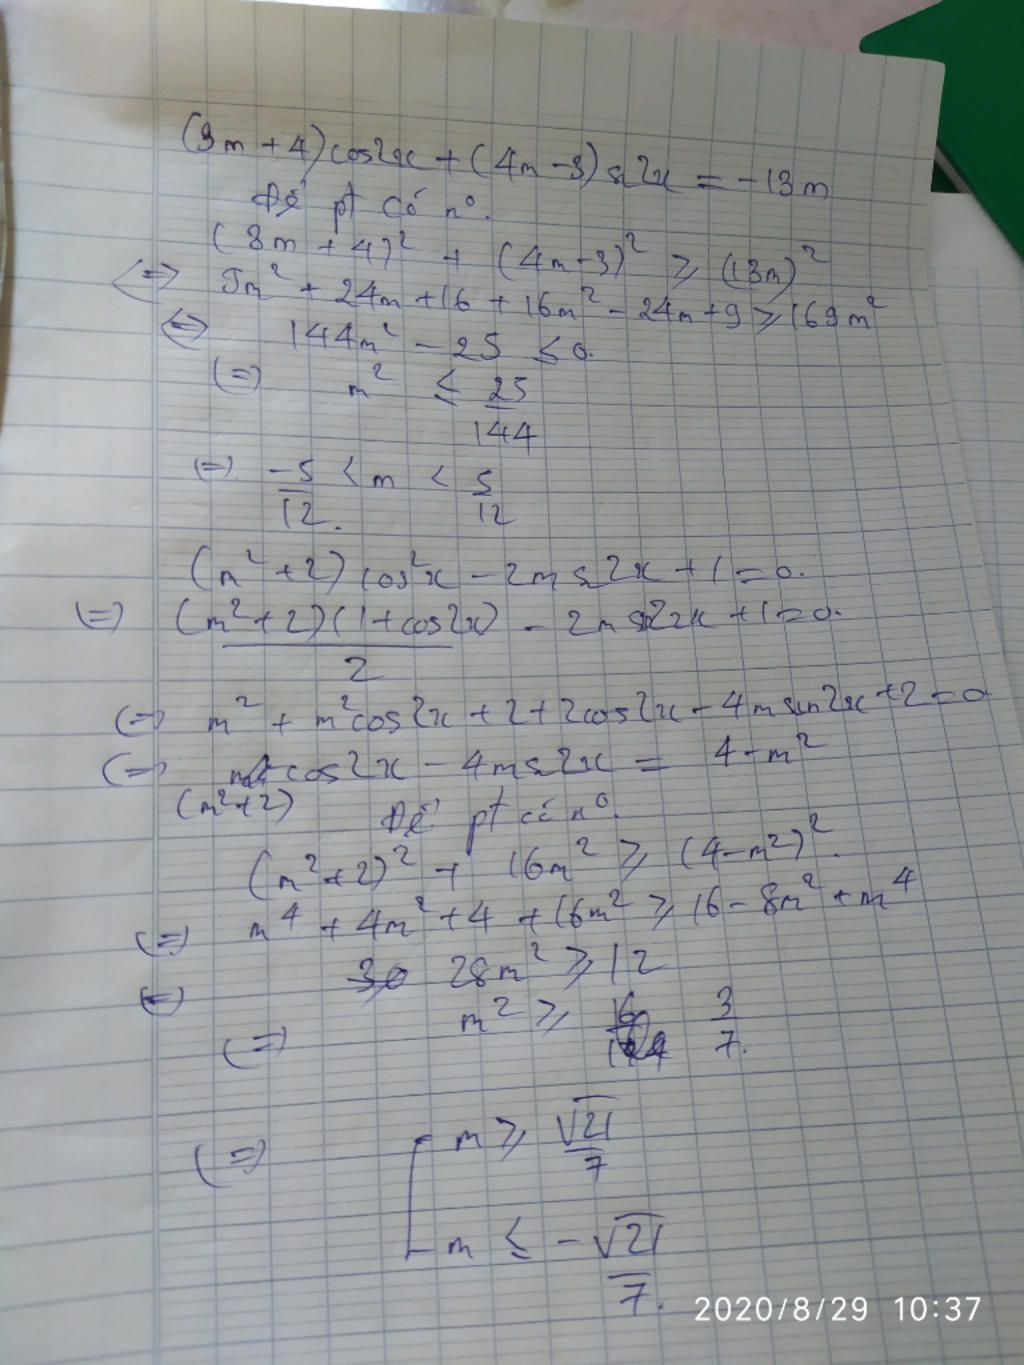 (3m + 4) cos2x + (4m - 3) s2x = -13m
Để pt có n⁰.
(3m + 4)² + (4m - 3)² ≥ (13m)²
<=> 9m² + 24m + 16 + 16m² - 24m + 9 ≥ 169m²
<=> 144m² - 25 ≤ 0.
(=) m² ≤ 25/144
(=) -5/12 < m < 5/12.
(m² + 2) cos²x - 2m s2x + 1 = 0.
(=) (m² + 2)(1 + cos2x)/2 - 2m sin2x + 1 = 0.
(=) m² + m²cos2x + 2 + 2cos2x - 4m sin2x + 2 = 0
(=) (m² + 2) cos2x - 4m s2x = 4 - m²
Để pt có n⁰.
(m² + 2)² + 16m² ≥ (4 - m²)².
(=) m⁴ + 4m² + 4 + 16m² ≥ 16 - 8m² + m⁴
(=) 28m² ≥ 12
(=) m² ≥ 3/7.
(=) [ m ≥ √21/7
m ≤ -√21/7.
2020/8/29 10:37